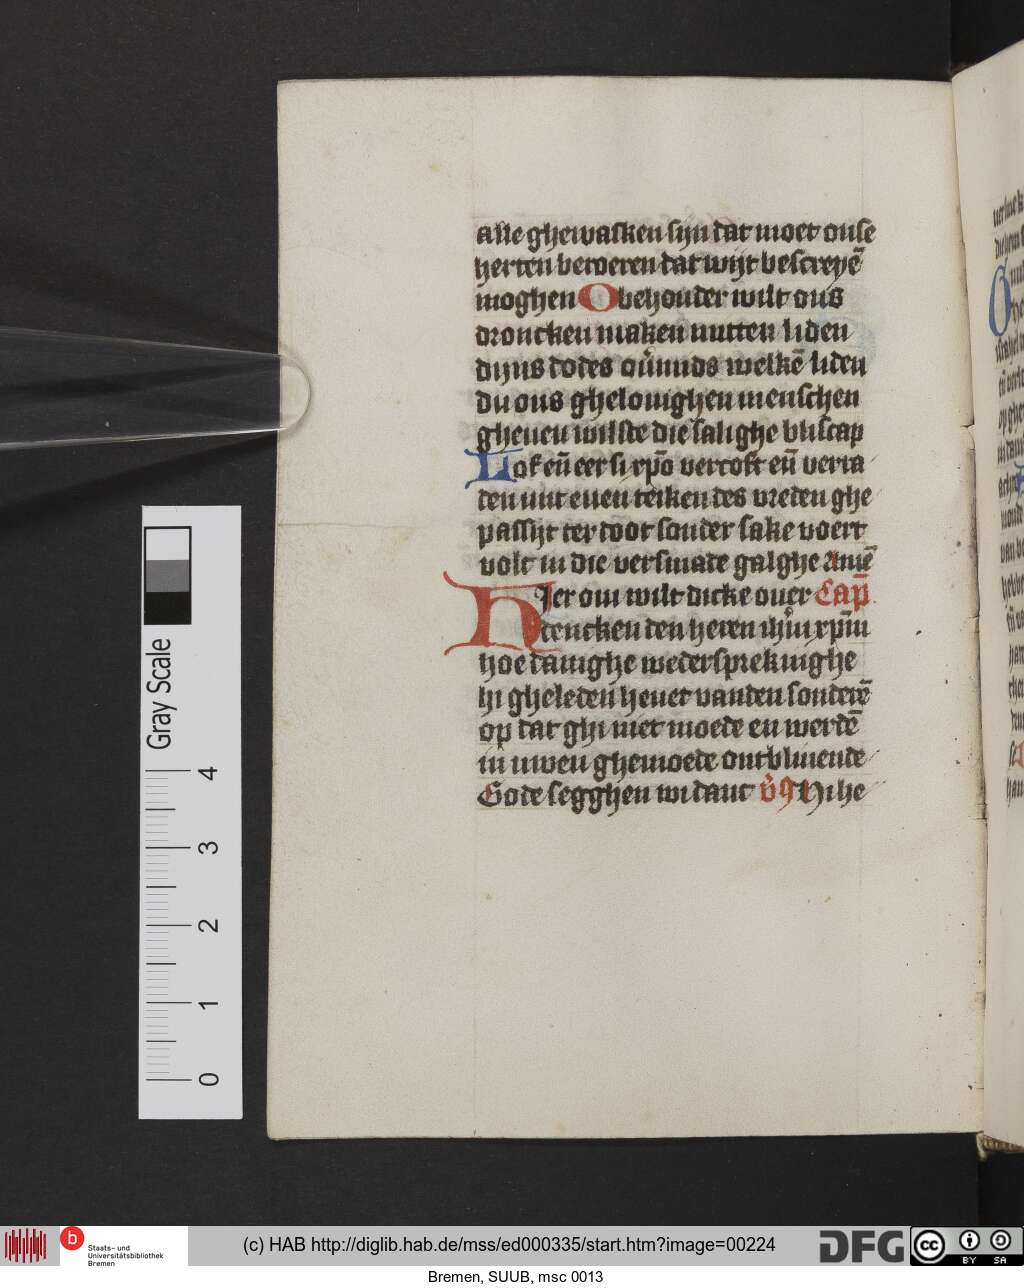 alle ghewasken sijn dat moet onse
herten beroeren dat wijt bescreyē
moghen O behouder wilt ons
droncken maken mitten liden
dijns dodes oūmids welkē liden
du ons ghelouighen menschen
gheuen wilste die salighe bliscap
Lof eñ eer si xp̄o vercoft eñ verra
den mit enen teiken des vreden ghe
passijt ter doot sonder sake voert
volt in die versmade galghe Amē
Hier om wilt dicke ouer Cap̄
dencken den heren ihm̄ xp̄m
hoe danighe wedersprekinghe
hi gheleden heuet vanden sonderē
op dat ghi niet moede en werdē
in uwen ghemoede ontbliuende
Gode segghen wi danc Hi he
Gray Scale
4
3
2
1
0
b
Staats- und
Universitätsbibliothek
Bremen
(c) HAB http://diglib.hab.de/mss/ed000335/start.htm?image=00224
DFG
cc
BY SA
Bremen, SUUB, msc 0013